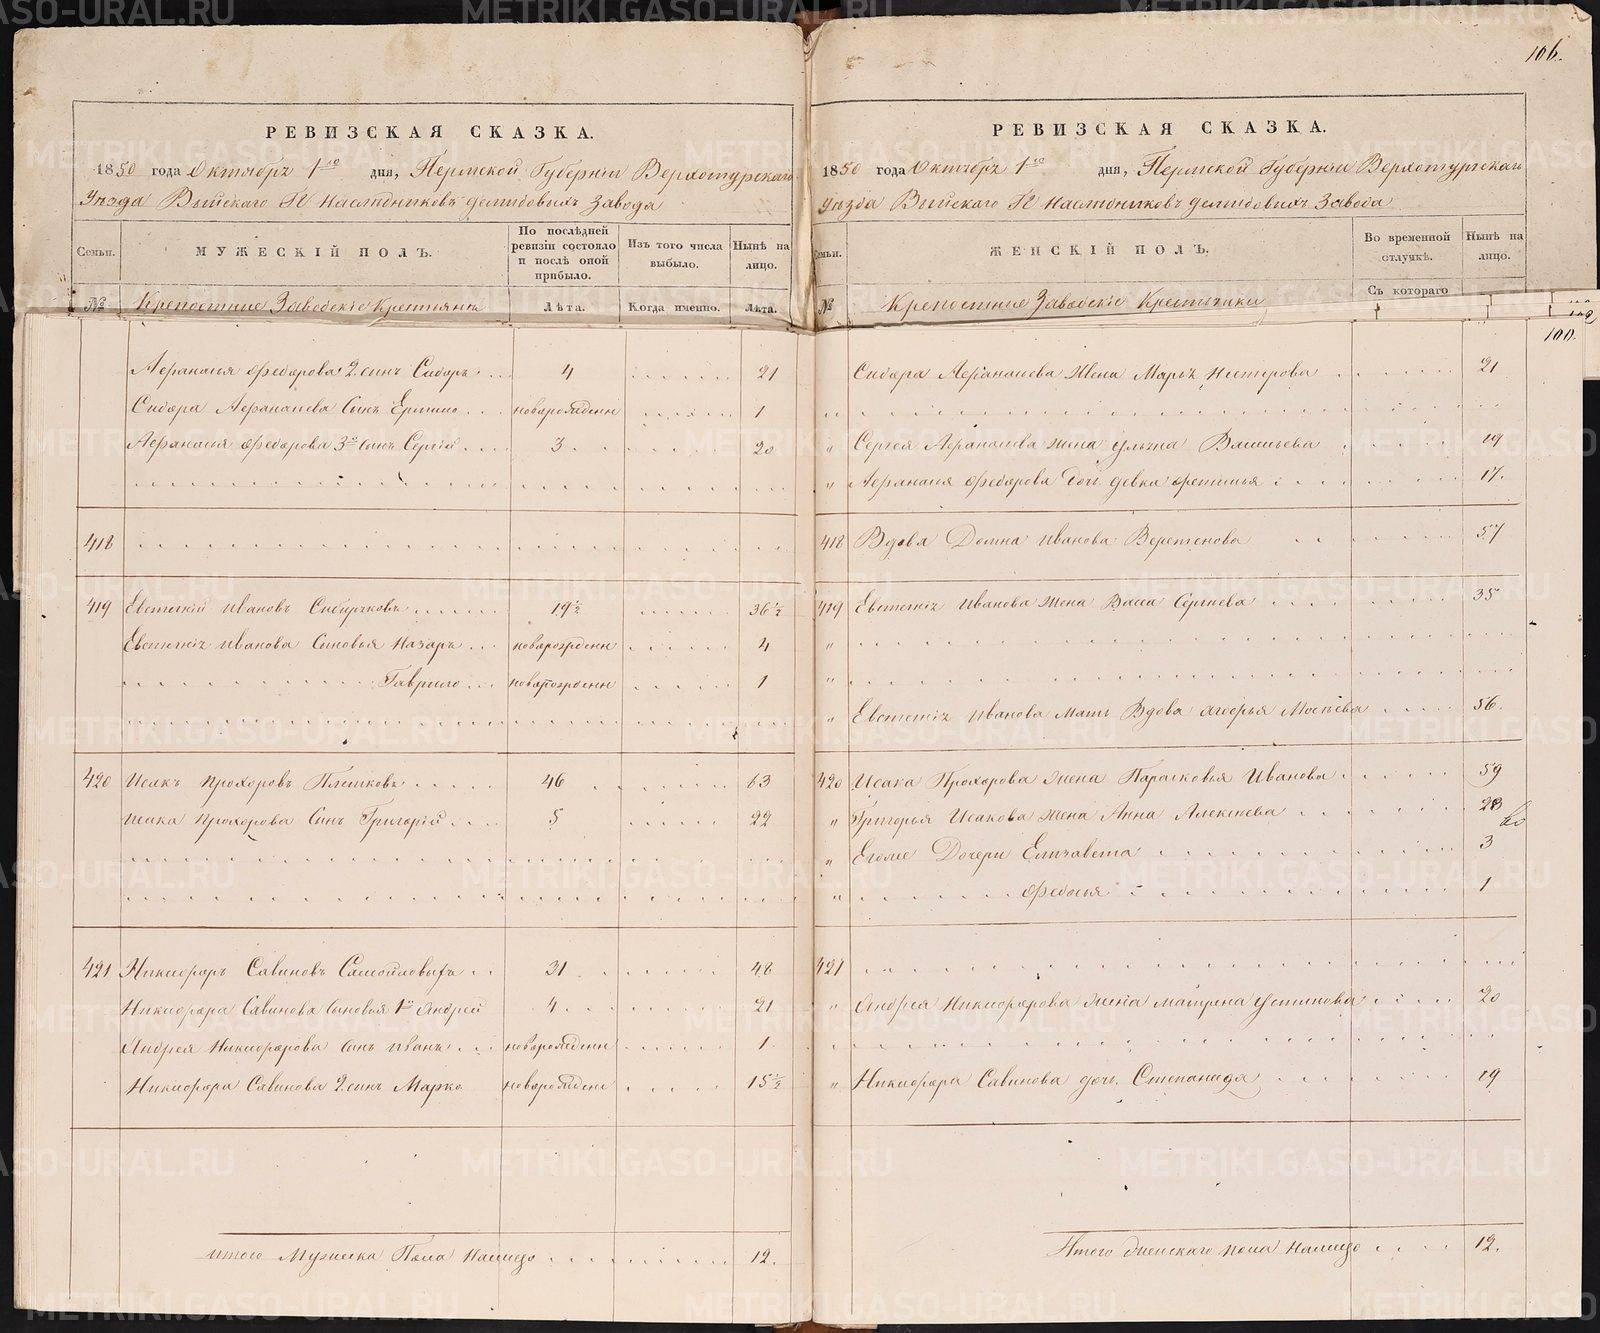 106.
РЕВИЗСКАЯ СКАЗКА.
1850 года Октября 1го дня, Пермской Губерніи Верхотурскаго
Уѣзда Выйскаго Гг Наслѣдниковъ Демидовыхъ Завода
Семьи.
МУЖЕСКІЙ ПОЛЪ.
По послѣдней ревизіи состояло и послѣ оной прибыло.
Изъ того числа выбыло.
Нынѣ на лицо.
№ Крепостные Заводскіе Крестьяна Лѣта. Когда именно. Лѣта.
Афанасья Федорова 2. сынъ Сидоръ 4 21
Сидора Афанасьева Сынъ Ермило новорожденн 1
Афанасья Федорова 3й сынъ Сергѣй 3 20
418
419 Евстегній Ивановъ Сибиряковъ 19½ 36½
Евстегнія Иванова Сыновья Назаръ новорожденн 4
Гаврило новорожденн 1
420 Исакъ Прохоровъ Плешковъ 46 63
Исака Прохорова Сынъ Григорій 5 22
421 Никифоръ Савиновъ Самойловыхъ 31 48
Никифора Савинова Сыновья 1й Андрей 4 21
Андрея Никифорова сынъ Иванъ новорожденн 1
Никифора Савинова 2. сынъ Марко новорожденн 15½
Итого Мужеска Пола Налицо 12.
РЕВИЗСКАЯ СКАЗКА.
1850 года Октября 1го дня, Пермской Губерніи Верхотурскаго
Уѣзда Выйскаго Гг Наслѣдниковъ Демидовыхъ Завода
Семьи.
ЖЕНСКІЙ ПОЛЪ.
Во временной отлучкѣ.
Нынѣ на лицо.
№ Крепостные Заводскіе Крестьянки Съ котораго
100.
Сидора Афанасьева Жена Марья Нестерова 21
" Сергея Афанасьева жена Ульяна Васильева 19
" Афанасья Федорова Дочь девка Фетинья 17.
418 Вдова Домна Иванова Веретенова 57
419 Евстегнія Иванова жена Васса Сергеева 35
"
"
" Евстегнія Иванова Мать Вдова Агафья Мосеева 56.
420 Исака Прохорова жена Парасковья Иванова 59
" Григорья Исакова жена Анна Алексеева 23
" Егоже Дочери Елизавета 3
" Федосья 1
421
" Андрея Никифорова жена Матрена Устинова 20
" Никифора Савинова дочь Степанида 19
Итого Женскаго пола налицо 12.
METRIKI.GASO-URAL.RU